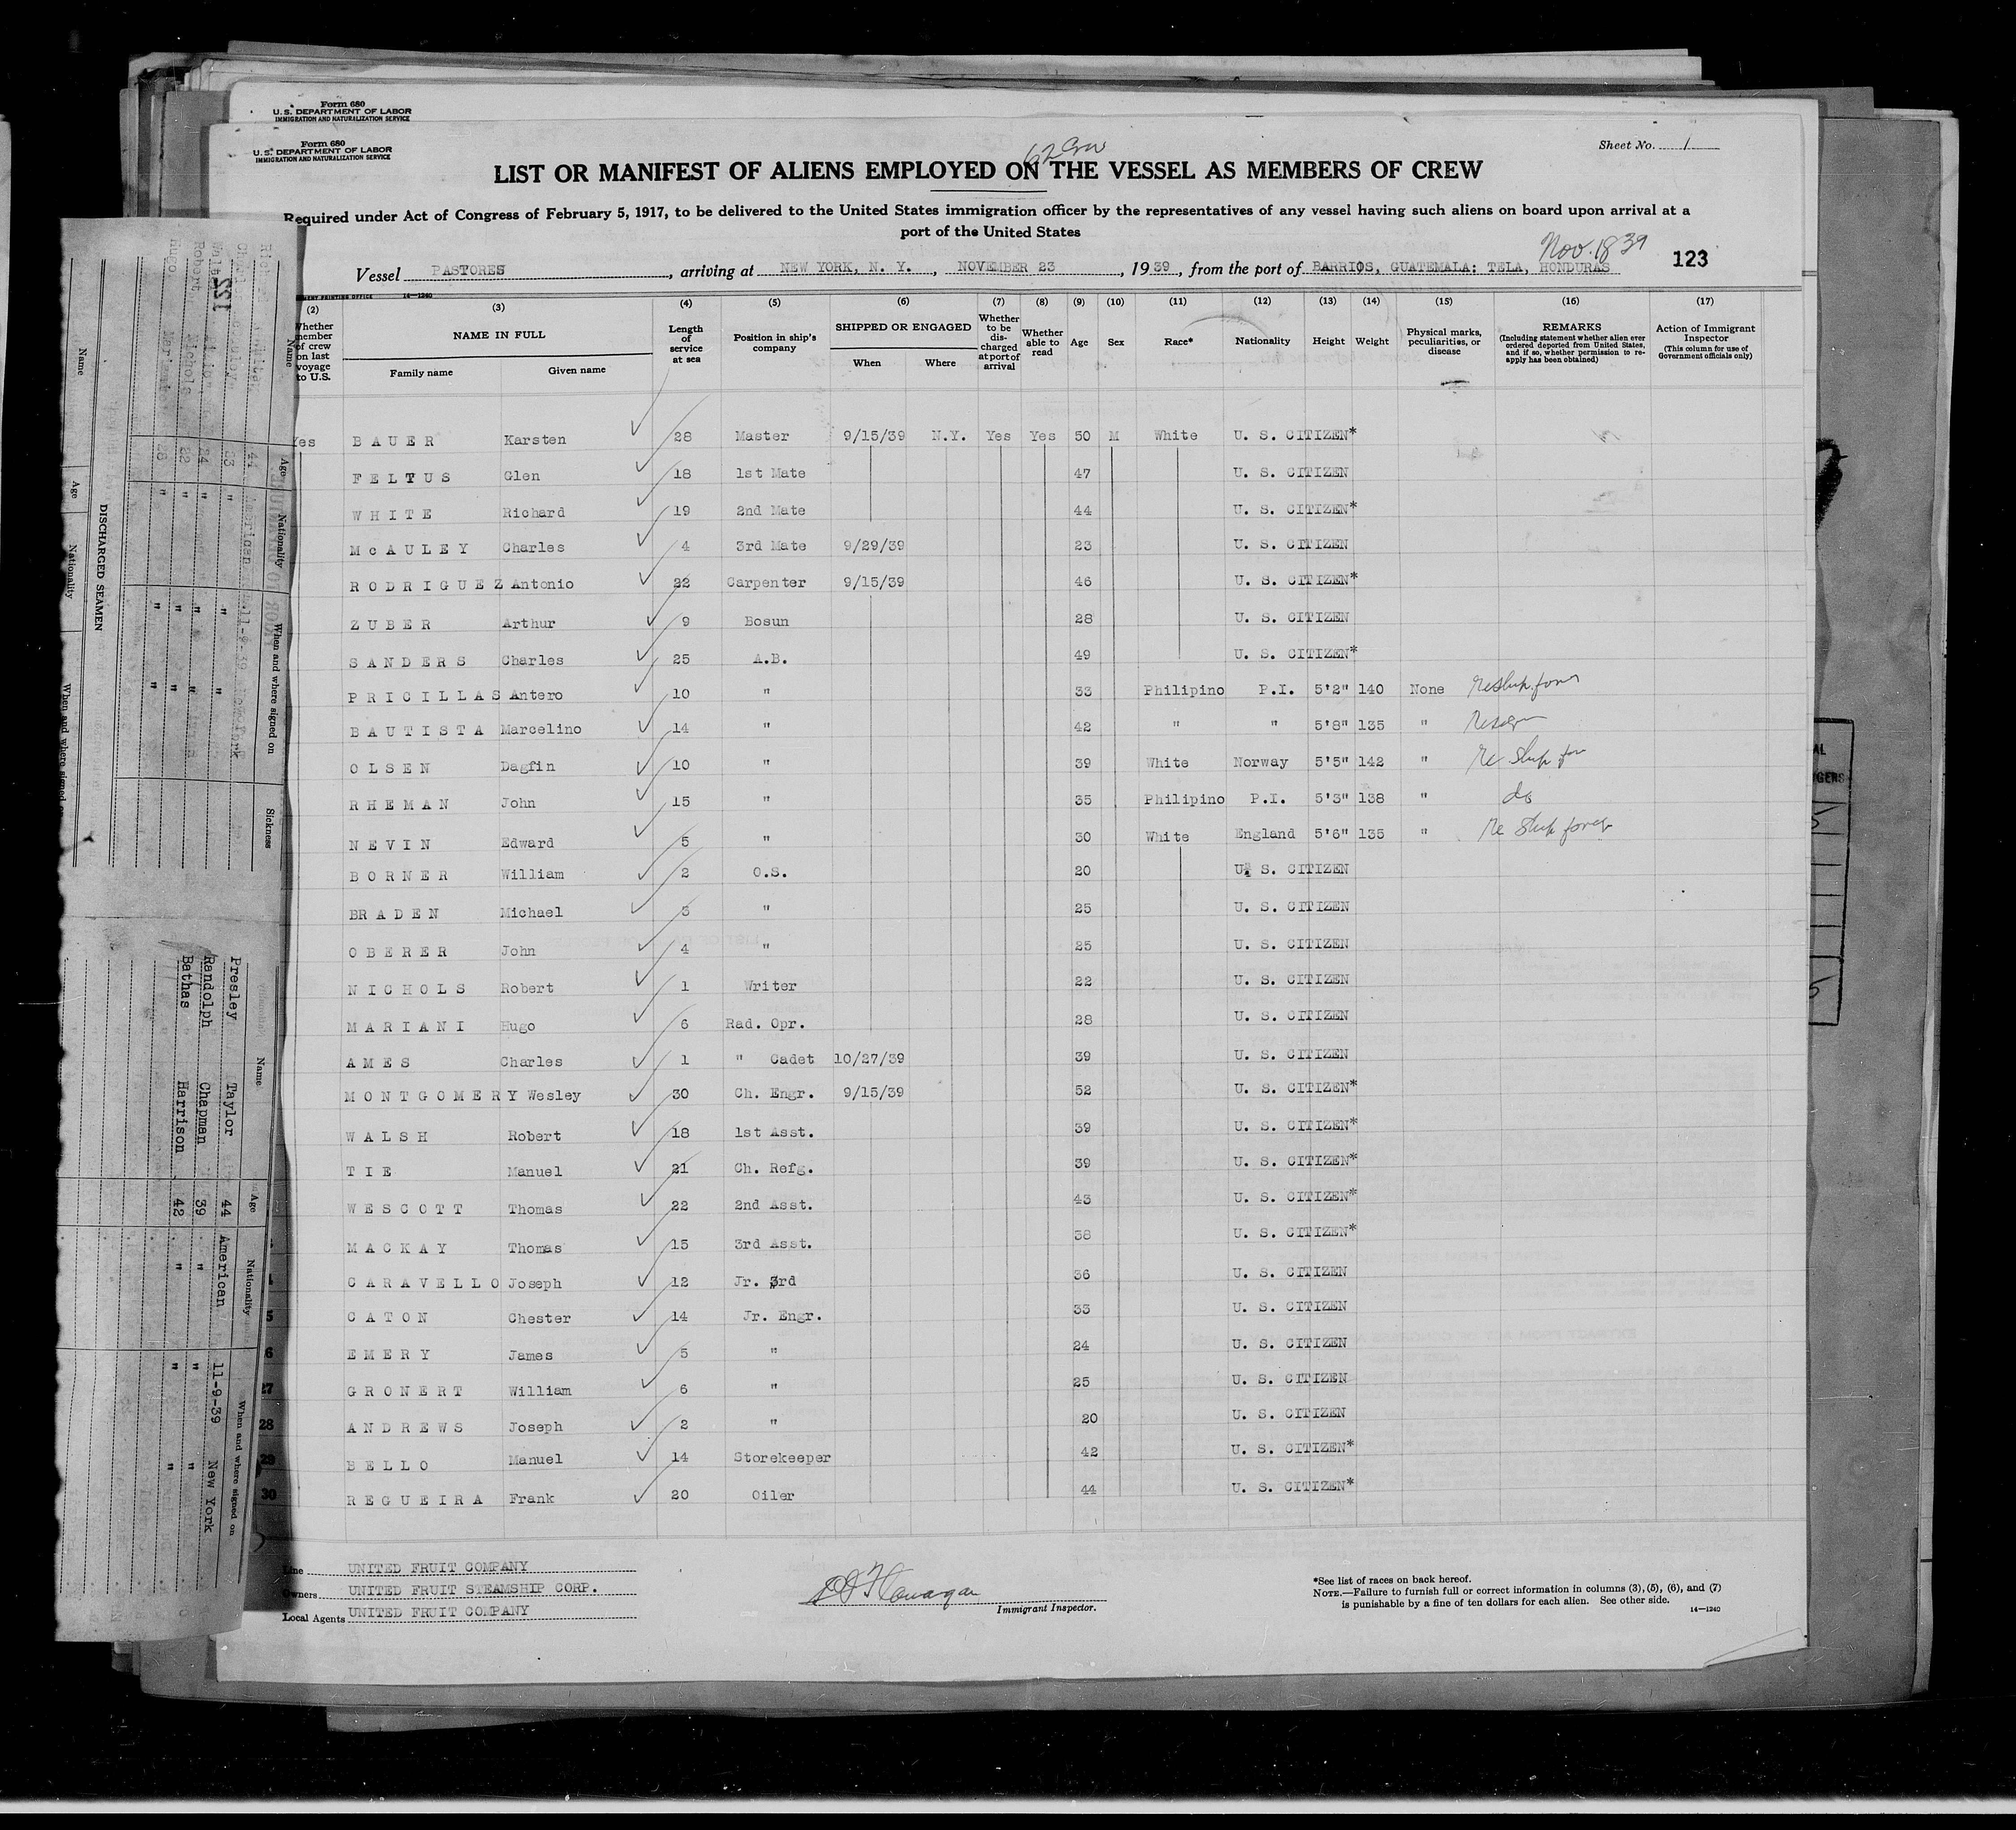 Form 680
U. S. DEPARTMENT OF LABOR
IMMIGRATION AND NATURALIZATION SERVICE
Form 680
U. S. DEPARTMENT OF LABOR
IMMIGRATION AND NATURALIZATION SERVICE
Sheet No. 1
LIST OR MANIFEST OF ALIENS EMPLOYED ON THE VESSEL AS MEMBERS OF CREW
Required under Act of Congress of February 5, 1917, to be delivered to the United States immigration officer by the representatives of any vessel having such aliens on board upon arrival at a
port of the United States
Nov. 18 39
Vessel PASTORES, arriving at NEW YORK, N. Y., NOVEMBER 23, 1939, from the port of BARRIOS, GUATEMALA; TELA, HONDURAS 123
14—1240
(2) (3) (4) (5) (6) (7) (8) (9) (10) (11) (12) (13) (14) (15) (16) (17)
Whether member of crew on last voyage to U.S.
NAME IN FULL
Family name Given name
Length of service at sea
Position in ship's company
SHIPPED OR ENGAGED
When Where
Whether to be discharged at port of arrival
Whether able to read
Age
Sex
Race*
Nationality
Height
Weight
Physical marks, peculiarities, or disease
REMARKS
(Including statement whether alien ever ordered deported from United States, and if so, whether permission to reapply has been obtained)
Action of Immigrant Inspector
(This column for use of Government officials only)
Yes BAUER Karsten 28 Master 9/15/39 N.Y. Yes Yes 50 M White U. S. CITIZEN*
FELTUS Glen 18 1st Mate 47 U. S. CITIZEN
WHITE Richard 19 2nd Mate 44 U. S. CITIZEN*
McAULEY Charles 4 3rd Mate 9/29/39 23 U. S. CITIZEN
RODRIGUEZ Antonio 22 Carpenter 9/15/39 46 U. S. CITIZEN*
ZUBER Arthur 9 Bosun 28 U. S. CITIZEN
SANDERS Charles 25 A.B. 49 U. S. CITIZEN*
PRICILLAS Antero 10 " 33 Philipino P.I. 5'2" 140 None
BAUTISTA Marcelino 14 " 42 " " 5'8" 135 "
OLSEN Dagfin 10 " 39 White Norway 5'5" 142 " Re Ship for
RHEMAN John 15 " 35 Philipino P.I. 5'3" 138 " do
NEVIN Edward 5 " 30 White England 5'6" 135 " Re Ship
BORNER William 2 O.S. 20 U. S. CITIZEN
BRADEN Michael 3 " 25 U. S. CITIZEN
OBERER John 4 " 25 U. S. CITIZEN
NICHOLS Robert 1 Writer 22 U. S. CITIZEN
MARIANI Hugo 6 Rad. Opr. 28 U. S. CITIZEN
AMES Charles 1 " Cadet 10/27/39 39 U. S. CITIZEN
MONTGOMERY Wesley 30 Ch. Engr. 9/15/39 52 U. S. CITIZEN*
WALSH Robert 18 1st Asst. 39 U. S. CITIZEN*
TIE Manuel 21 Ch. Refg. 39 U. S. CITIZEN*
WESCOTT Thomas 22 2nd Asst. 43 U. S. CITIZEN*
MACKAY Thomas 15 3rd Asst. 38 U. S. CITIZEN*
CARAVELLO Joseph 12 Jr. 3rd 36 U. S. CITIZEN
5 CATON Chester 14 Jr. Engr. 33 U. S. CITIZEN
6 EMERY James 5 " 24 U. S. CITIZEN
27 GRONERT William 6 " 25 U. S. CITIZEN
28 ANDREWS Joseph 2 " 20 U. S. CITIZEN
29 BELLO Manuel 14 Storekeeper 42 U. S. CITIZEN*
30 REGUEIRA Frank 20 Oiler 44 U. S. CITIZEN*
Line UNITED FRUIT COMPANY
Owners UNITED FRUIT STEAMSHIP CORP.
Local Agents UNITED FRUIT COMPANY
Immigrant Inspector.
*See list of races on back hereof.
NOTE.—Failure to furnish full or correct information in columns (3), (5), (6), and (7)
is punishable by a fine of ten dollars for each alien. See other side.
14—1240
DISCHARGED SEAMEN
Name Age Nationality When and where signed on
Name Age Nationality When and where signed on Sickness
Name Age Nationality When and where signed on
Presley Taylor 44 American 11-9-39 New York
Randolph Chapman 39 " " "
Bathas Harrison 42 " " "